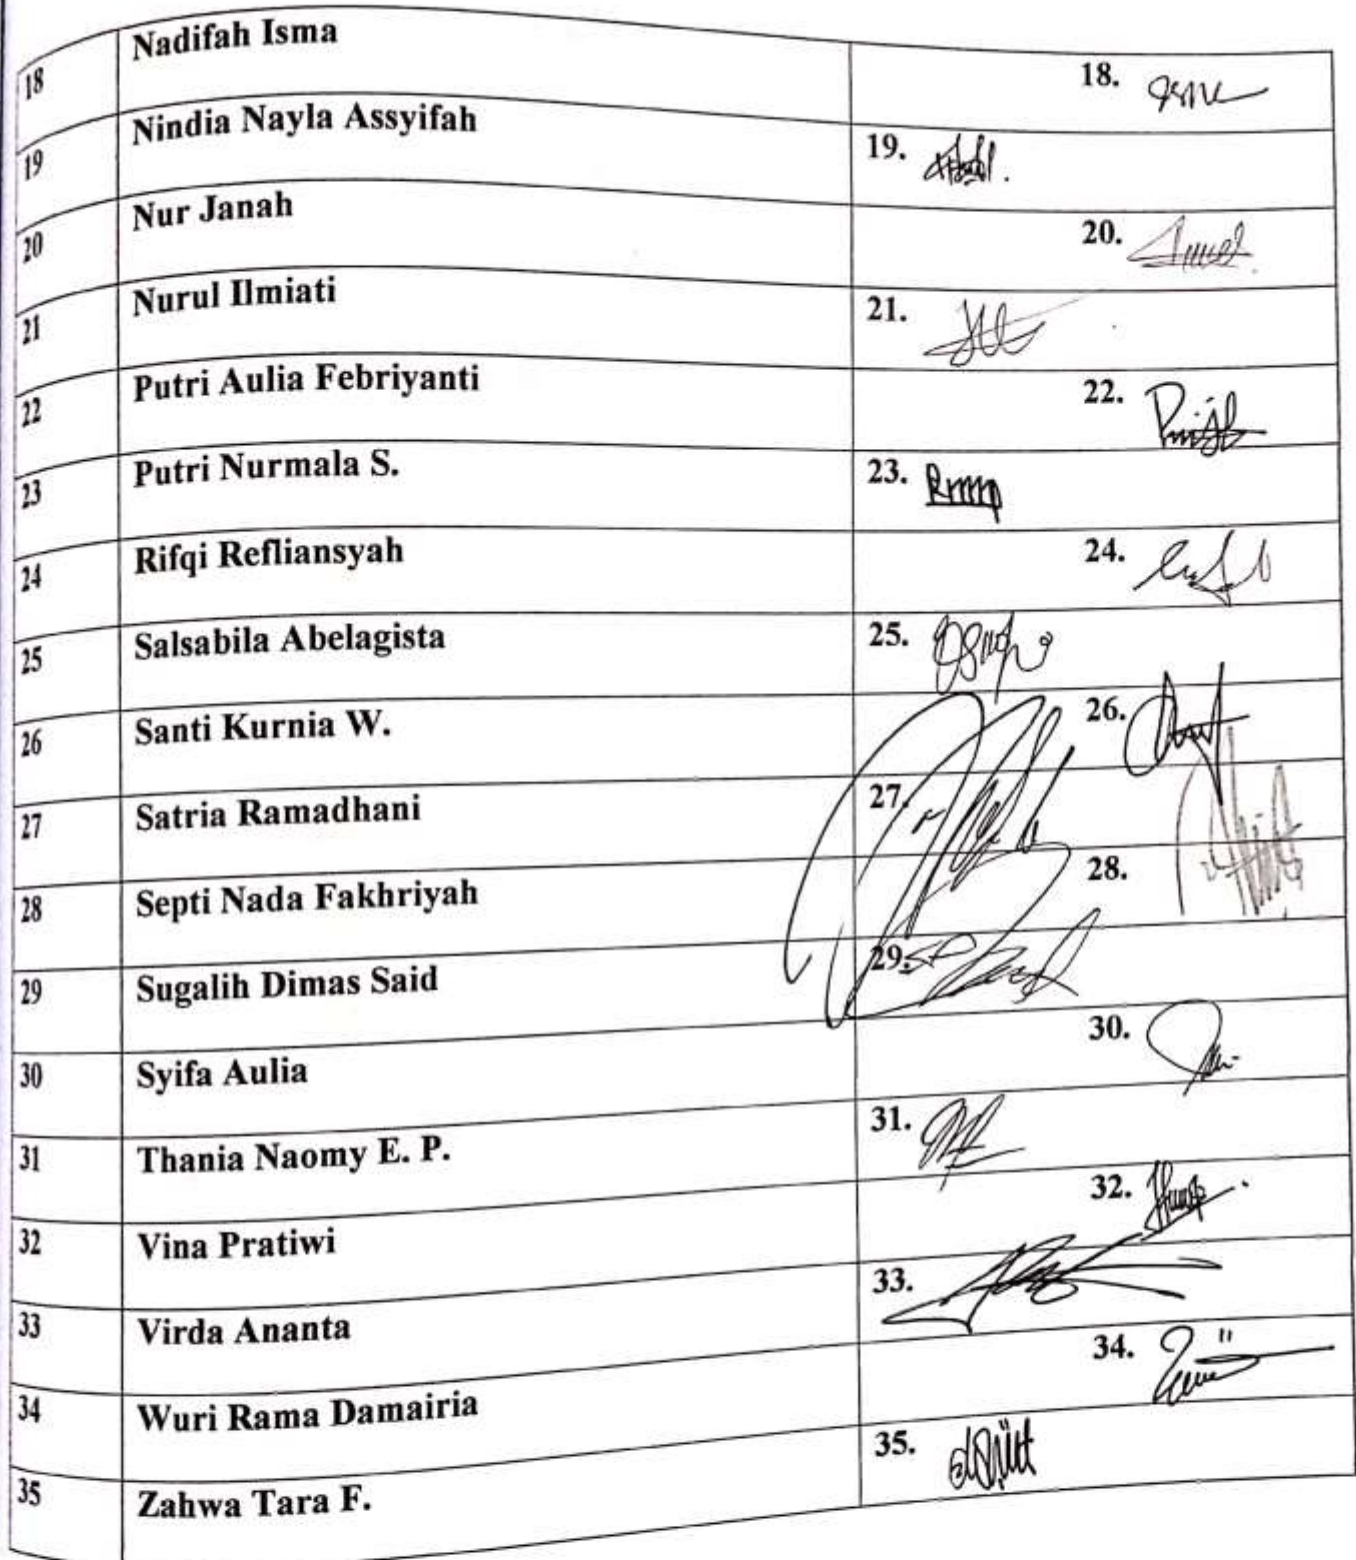 18 Nadifah Isma 18.
19 Nindia Nayla Assyifah 19.
20 Nur Janah 20.
21 Nurul Ilmiati 21.
22 Putri Aulia Febriyanti 22.
23 Putri Nurmala S. 23.
24 Rifqi Refliansyah 24.
25 Salsabila Abelagista 25.
26 Santi Kurnia W. 26.
27 Satria Ramadhani 27.
28 Septi Nada Fakhriyah 28.
29 Sugalih Dimas Said 29.
30 Syifa Aulia 30.
31 Thania Naomy E. P. 31.
32 Vina Pratiwi 32.
33 Virda Ananta 33.
34 Wuri Rama Damairia 34.
35 Zahwa Tara F. 35.